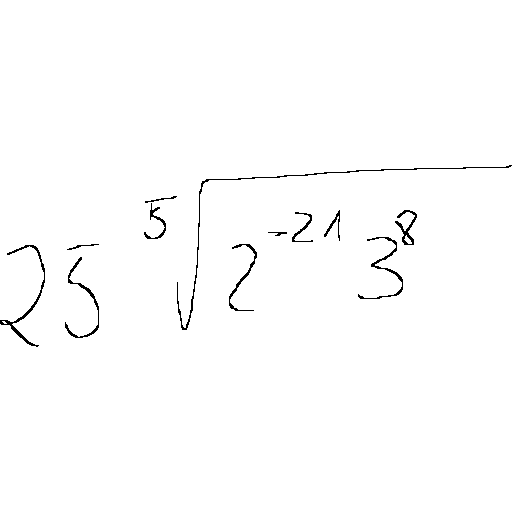 25 \sqrt[5]{2^{-21} 3^8}